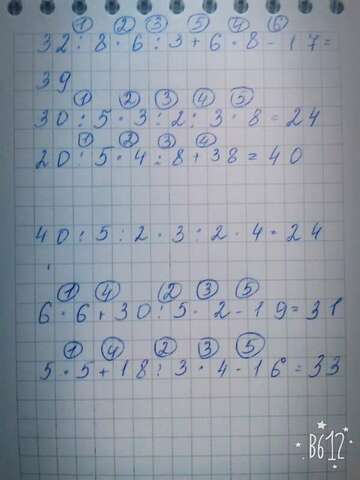 ① ② ③ ⑤ ④ ⑥
32:8·6:3+6·8-17=
39
① ② ③ ④ ⑤
30:5·3:2:3·8=24
① ② ③ ④
20:5·4:8+38=40
40:5:2·3:2·4=24
① ④ ② ③ ⑤
6·6+30:5·2-19=31
① ④ ② ③ ⑤
5·5+18:3·4-16=33
B612